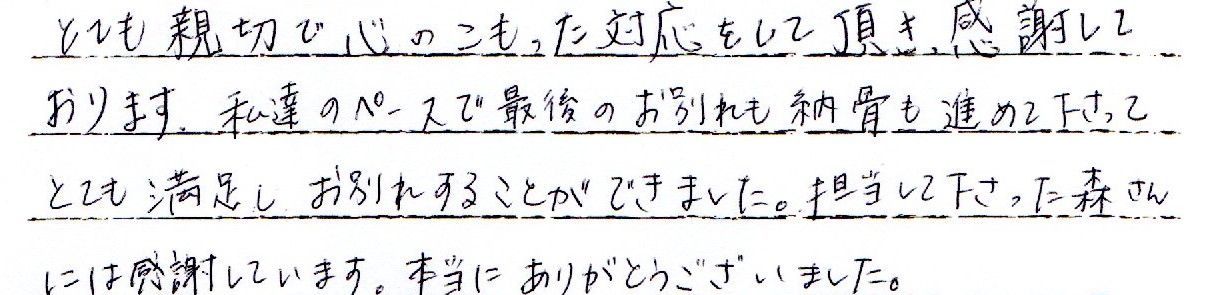 とても親切で心のこもった対応をして頂き、感謝して
おります。私達のペースで最後のお別れも納骨も進めて下さって
とても満足しお別れすることができました。担当して下さった森さん
には感謝しています。本当にありがとうございました。